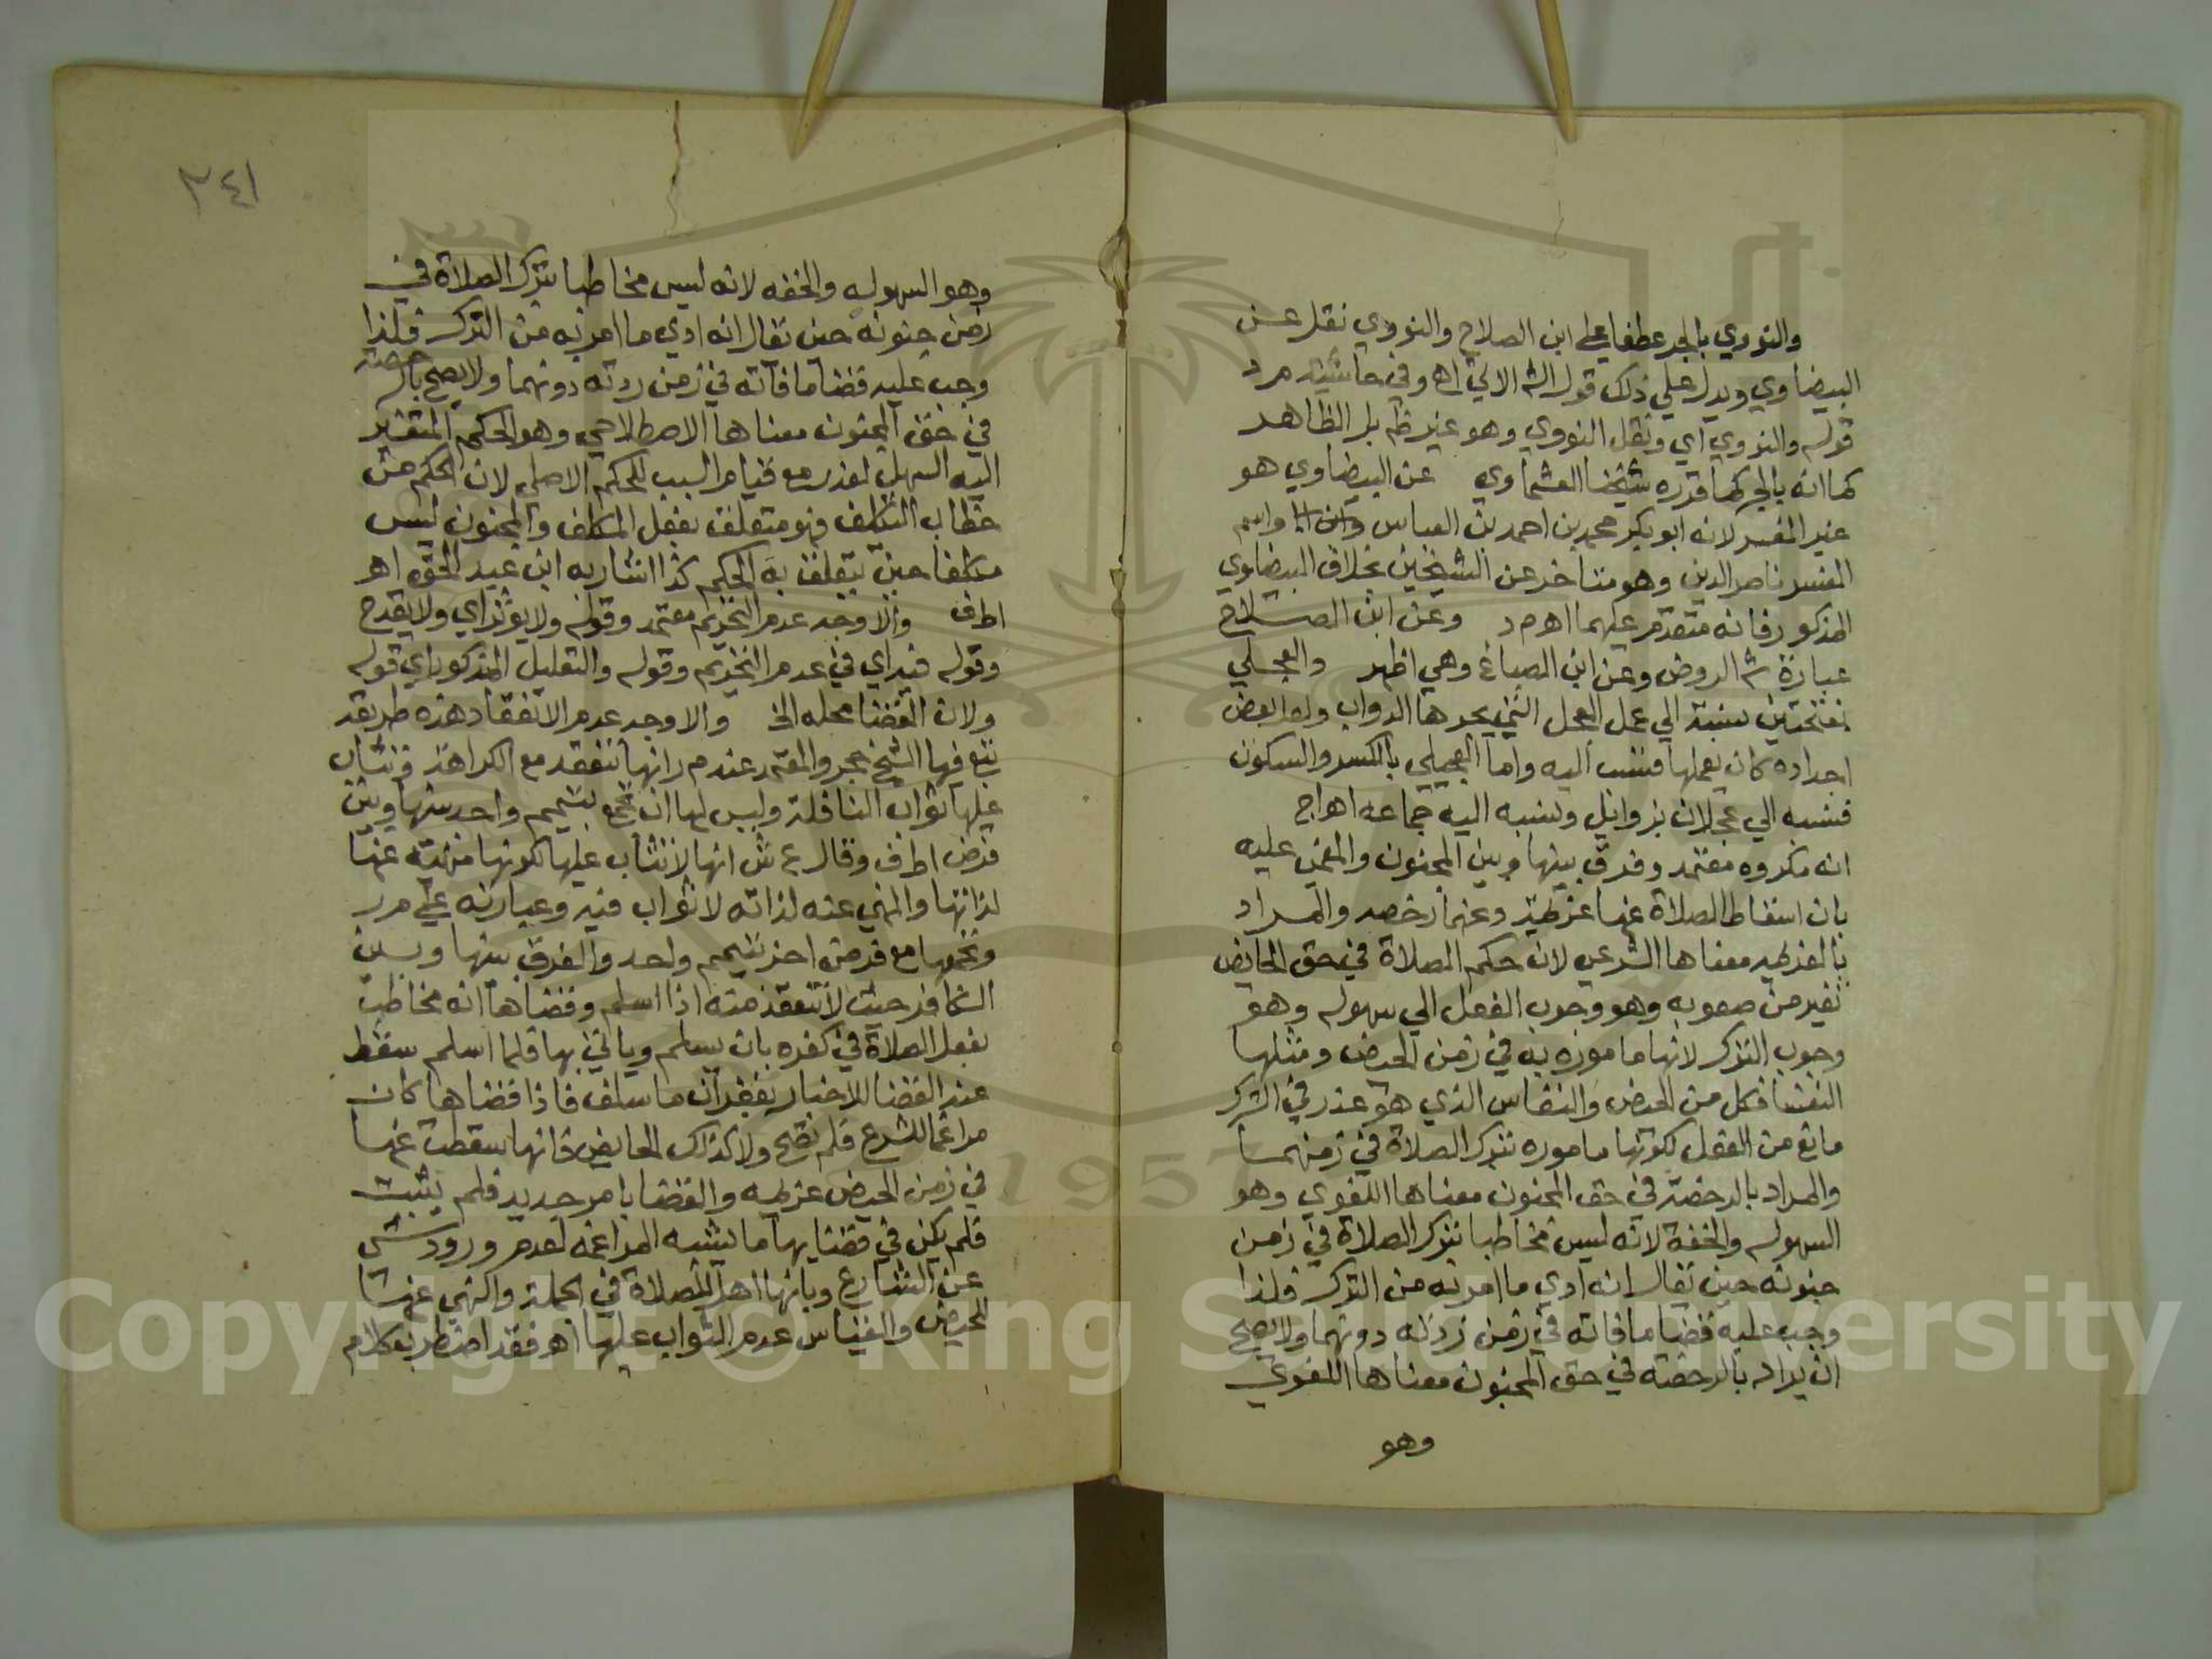 والنووي بالجر عطفا على ابن الصلاح والنووي نقل عن
البيضاوي ويدل على ذلك قول الشه الاتي اه وفي حاشية م ر د
قوله والنووي اي ونقل النووي وهو غير ظم بل الظاهر
كما انه بالجر كما قرره شيخنا العشماوي عن البيضاوي هو
غير المفسر لانه ابو بكر محمد بن احمد بن العباس واسم
المفسر ناصر الدين وهو متاخر عن الشيخين بخلاف البيضاوي
المذكور فانه متقدم عليهما اه م د وعن ابن الصلاح
عبارة شه الروض وعن ابن الصباغ وهي اظهر والعجلي
بفتحتين نسبة الي عمل العجل التي يجرها الدواب ولعل بعض
اجداده كان يعملها فنسب اليه واما العجيلي بالكسر والسكون
فنسبه الي عجلان بن وايل ونسبه اليه جماعه اه اج
انه مكروه معتمد وفرق بينها وبين المجنون والمغمى عليه
بان اسقاط الصلاة عنها عزيمة وعنهما رخصه والمراد
بالعزيمه معناها الشرعي لان حكم الصلاة في حق الحايض
تغير من صعوبه وهو وجوب الفعل الي سهوله وهو
وجوب الترك لانها ماموره به في زمن الحيض ومثلها
النفسا فكل من الحيض والنفاس الذي هو عذر في الترك
مانع من الفعل لكونها ماموره بترك الصلاة في زمنهما
والمراد بالرخصة في حق المجنون معناها اللغوي وهو
السهوله والخفة لانه ليس مخاطبا بترك الصلاة في زمن
جنونه حين يقال انه ادي ما امر به من الترك فلذا
وجب عليه قضا ما فاته في زمن ردته دونهما ولا يصح
ان يراد بالرخصه في حق المجنون معناها اللغوي
وهو
٣٤١
وهو السهوله والخفه لانه ليس مخاطبا بترك الصلاة في
زمن جنونه حين يقال انه ادي ما امر به من الترك فلذا
وجب عليه قضا ما فاته في زمن ردته دونهما ولا يصح بالرخصة
في حق المجنون معناها الاصطلاحي وهو الحكم المتغير
اليه السهل لعذر مع قيام السبب للحكم الاصلي لان الحكم من
خطاب التكليف فهو متعلق بفعل المكلف والمجنون ليس
مكلفا حين يتعلق به الحكم كذا اشار به ابن عبد الحق اه
اطف والاوجه عدم التحريم معتمد وقوله ولا يوثر اي ولا يقدح
وقوله فيه اي في عدم التحريم وقوله والتعليل المذكور اي قوله
ولان القضا محله الخ والاوجه عدم الانعقاد هذه طريقة
تبع فيها الشيخ حجر والمعتمد عند م ر انها تنعقد مع الكراهة وتثاب
عليها ثواب النافلة وليس لها ان تجمع بتيمم واحد بينها وبين
فرض اطف وقال ع ش انها لا تثاب عليها لكونها منهية عنها
لذاتها والمنهي عنه لذاته لا ثواب فيه وعبارته على م ر
وتجمعها مع فرض اخر بتيمم واحد والفرق بينها وبين
الكافر حيث لا تنعقد منه اذا اسلم وقضاها انه مخاطب
بفعل الصلاة في كفره بان يسلم وياتي بها فلما اسلم سقط
عنه القضا للاخبار بغفران ما سلف فاذا قضاها كان
مراغما للشرع فلم تصح ولا كذلك الحايض فانها سقطت عنها
في زمن الحيض عزيمه والقضا بامر جديد فلم يثبت
فلم يكن في قضايها ما يشبه المراغمه لعدم ورود شي
عن الشارع وبانها اهل للصلاة في الجملة والنهي عنها
للحيض والقياس عدم الثواب عليها اه فقد اضطرب كلام
Copyright © King Saud University
1957